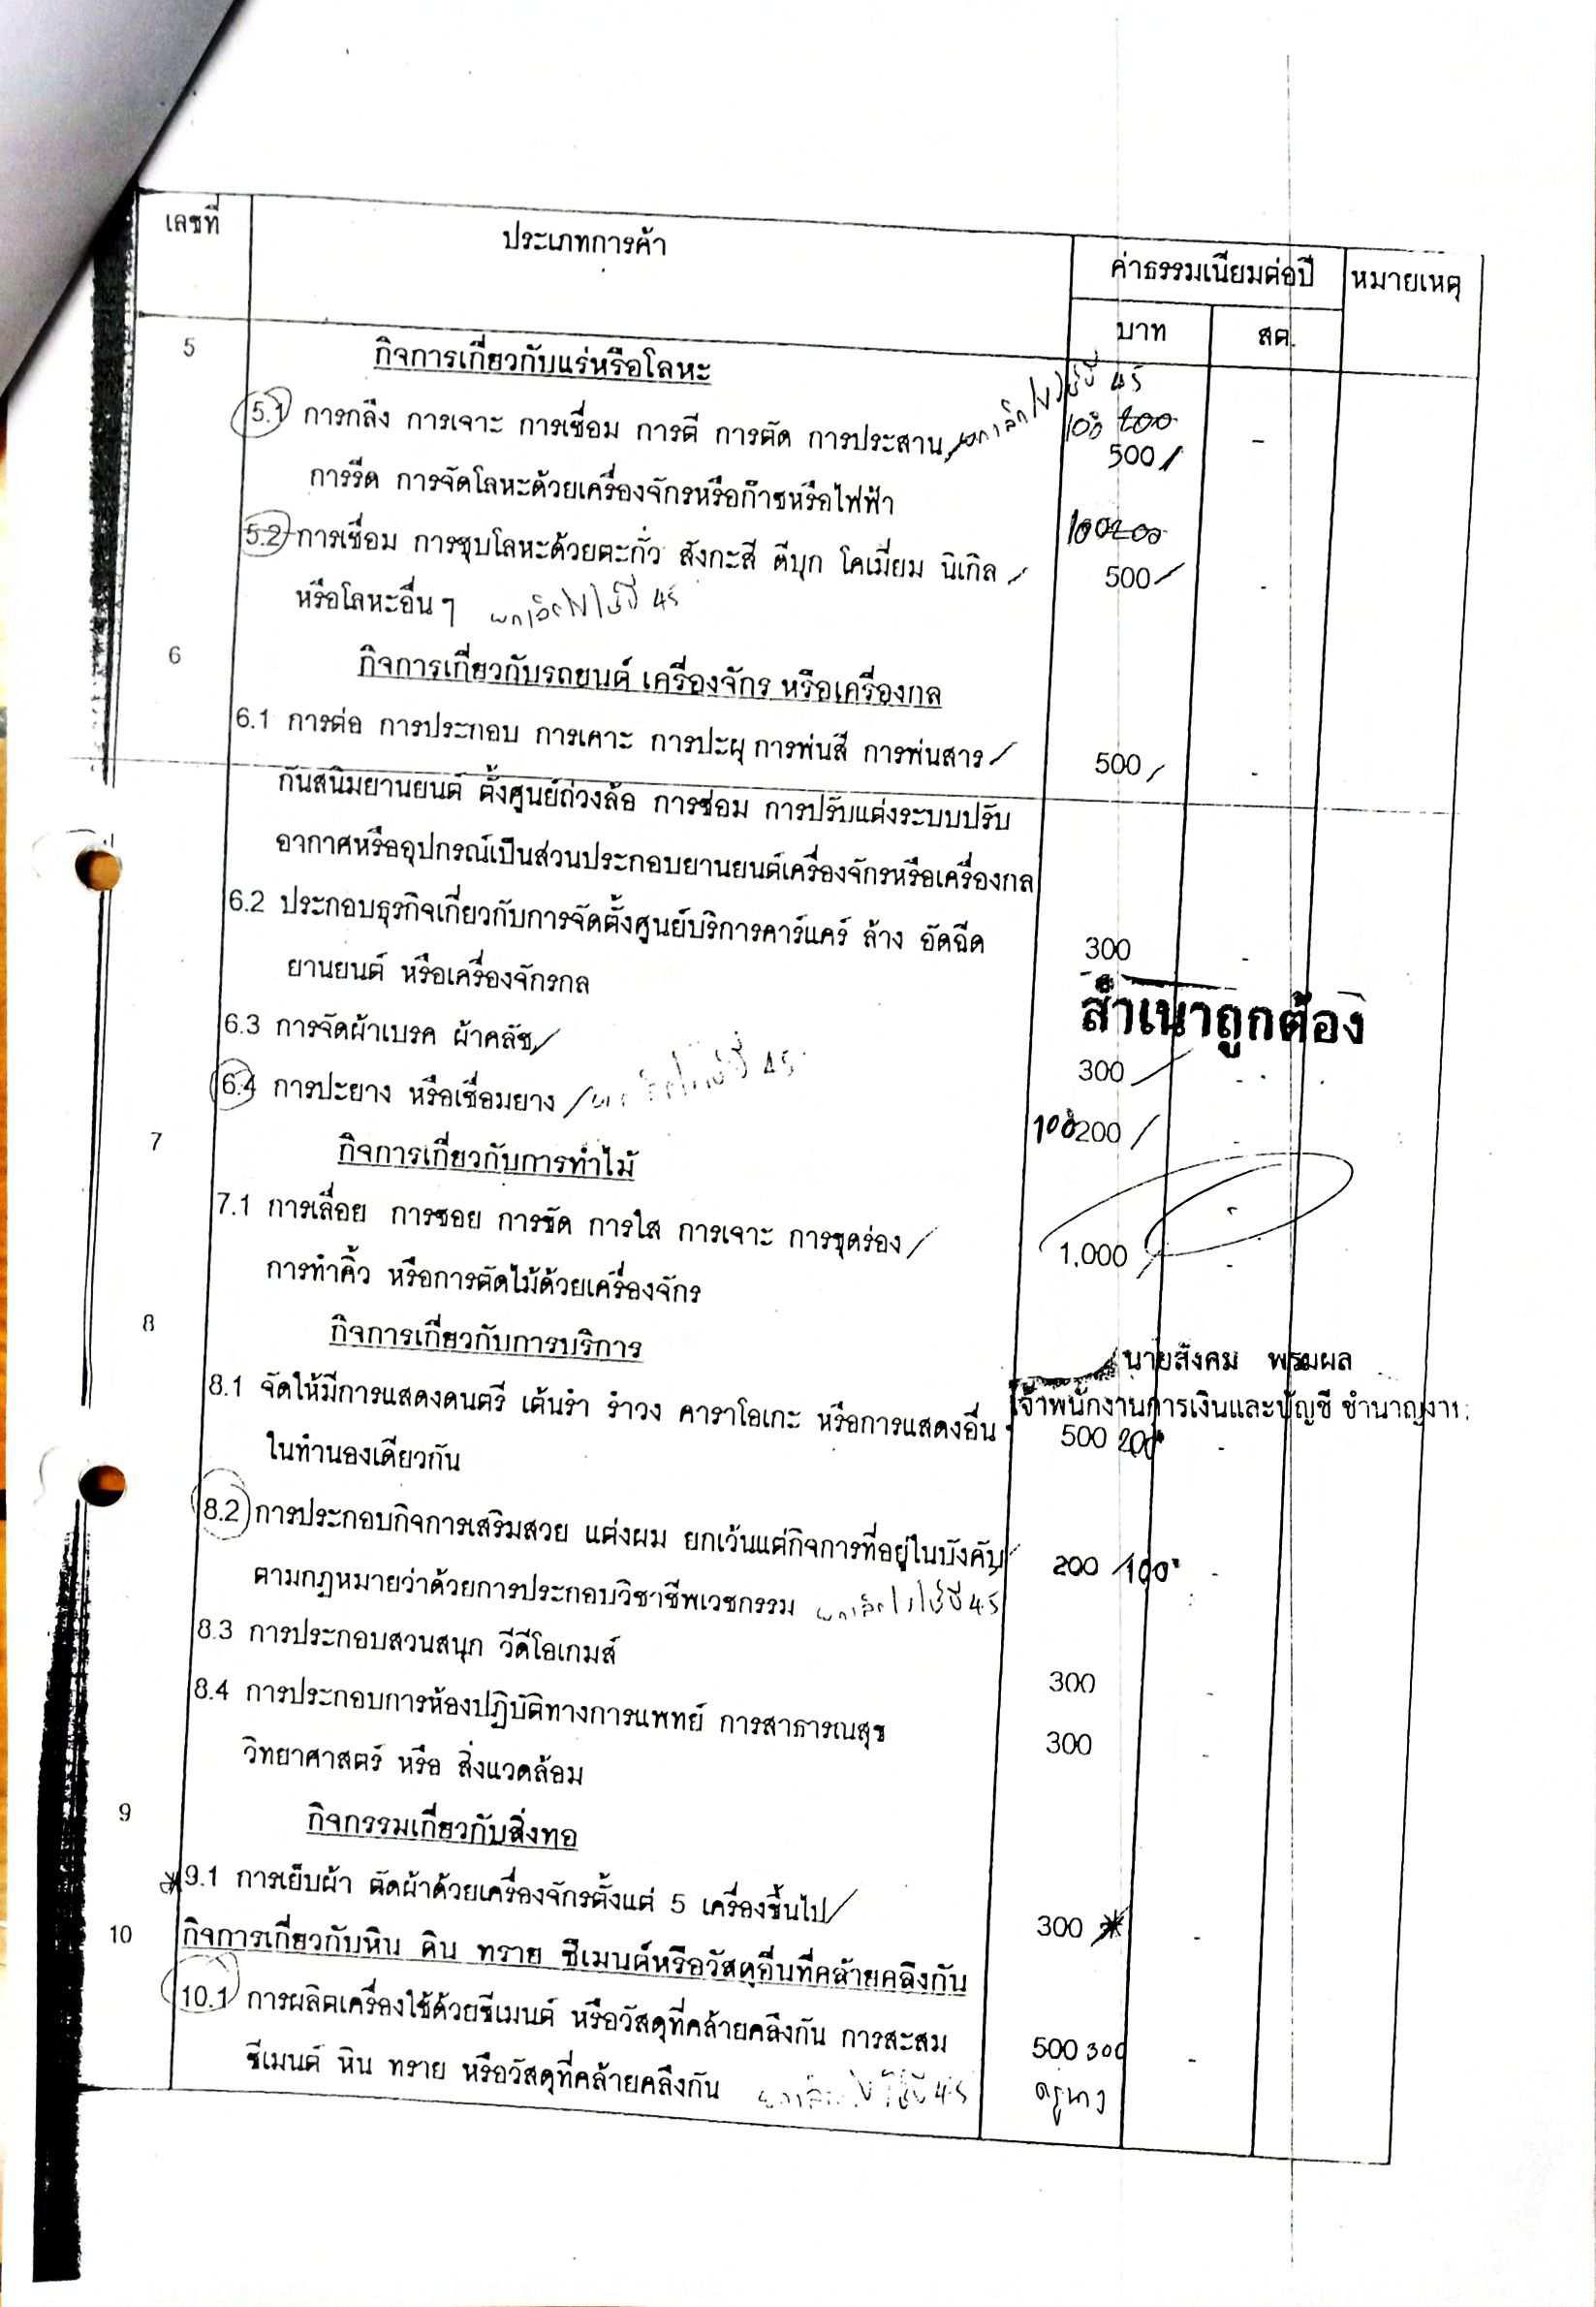 เลขที่ ประเภทการค้า ค่าธรรมเนียมต่อปี หมายเหตุ
บาท สต.
5 กิจการเกี่ยวกับแร่หรือโลหะ
5.1 การกลึง การเจาะ การเชื่อม การตี การตัด การประสาน 100 200 -
500
การรีด การจัดโลหะด้วยเครื่องจักรหรือก๊าซหรือไฟฟ้า
5.2 การเชื่อม การชุบโลหะด้วยตะกั่ว สังกะสี ดีบุก โคเมี่ยม นิเกิล 100 200
500 -
หรือโลหะอื่น ๆ
6 กิจการเกี่ยวกับรถยนต์ เครื่องจักร หรือเครื่องกล
6.1 การต่อ การประกอบ การเคาะ การปะผุ การพ่นสี การพ่นสาร 500 -
กันสนิมยานยนต์ ตั้งศูนย์ถ่วงล้อ การซ่อม การปรับแต่งระบบปรับ
อากาศหรืออุปกรณ์เป็นส่วนประกอบยานยนต์เครื่องจักรหรือเครื่องกล
6.2 ประกอบธุรกิจเกี่ยวกับการจัดตั้งศูนย์บริการคาร์แคร์ ล้าง อัดฉีด 300 -
ยานยนต์ หรือเครื่องจักรกล
สำเนาถูกต้อง
6.3 การจัดผ้าเบรค ผ้าคลัช 300 -
6.4 การปะยาง หรือเชื่อมยาง 100 200 -
7 กิจการเกี่ยวกับการทำไม้
7.1 การเลื่อย การซอย การขัด การใส การเจาะ การขุดร่อง 1,000 -
การทำคิ้ว หรือการตัดไม้ด้วยเครื่องจักร
8 กิจการเกี่ยวกับการบริการ
นายสังคม พรมผล
เจ้าพนักงานการเงินและบัญชี ชำนาญงาน
8.1 จัดให้มีการแสดงดนตรี เต้นรำ รำวง คาราโอเกะ หรือการแสดงอื่น ๆ 500 200 -
ในทำนองเดียวกัน
8.2 การประกอบกิจการเสริมสวย แต่งผม ยกเว้นแต่กิจการที่อยู่ในบังคับ 200 100 -
ตามกฎหมายว่าด้วยการประกอบวิชาชีพเวชกรรม
8.3 การประกอบสวนสนุก วีดีโอเกมส์ 300 -
8.4 การประกอบการห้องปฏิบัติทางการแพทย์ การสาธารณสุข 300 -
วิทยาศาสตร์ หรือ สิ่งแวดล้อม
9 กิจกรรมเกี่ยวกับสิ่งทอ
9.1 การเย็บผ้า ตัดผ้าด้วยเครื่องจักรตั้งแต่ 5 เครื่องขึ้นไป 300 -
10 กิจการเกี่ยวกับหิน ดิน ทราย ซีเมนต์หรือวัสดุอื่นที่คล้ายคลึงกัน
10.1 การผลิตเครื่องใช้ด้วยซีเมนต์ หรือวัสดุที่คล้ายคลึงกัน การสะสม 500 300 -
ซีเมนต์ หิน ทราย หรือวัสดุที่คล้ายคลึงกัน